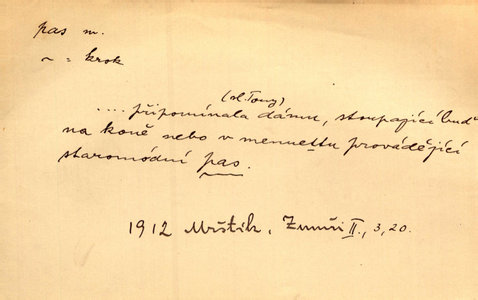 pas m.
~ = krok
(sl. Tony)
.... připomínala dámu, stoupající buď
na koně nebo v menuettu provádějící
staromódní pas.
1912 Mrštík, Zumři II., 3, 20.